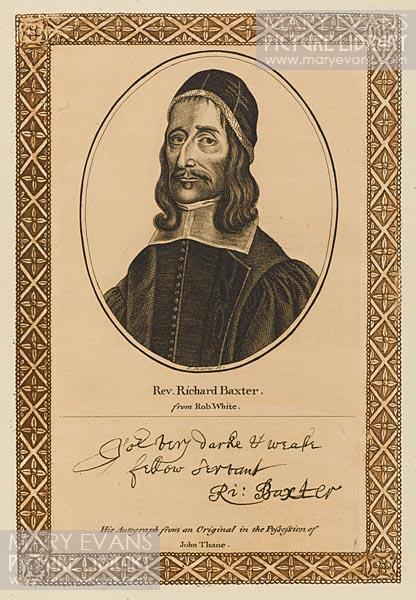 MARY EVANS
PICTURE LIBRARY
www.maryevans.com
Rev. Richard Baxter.
from Rob. White.
Yoᵘʳ very darke & weake
fellow servant
Ri: Baxter
His Autograph from an Original in the Poſseſsion of
John Thane.
MARY EVANS
PICTURE LIBRARY
www.maryevans.com